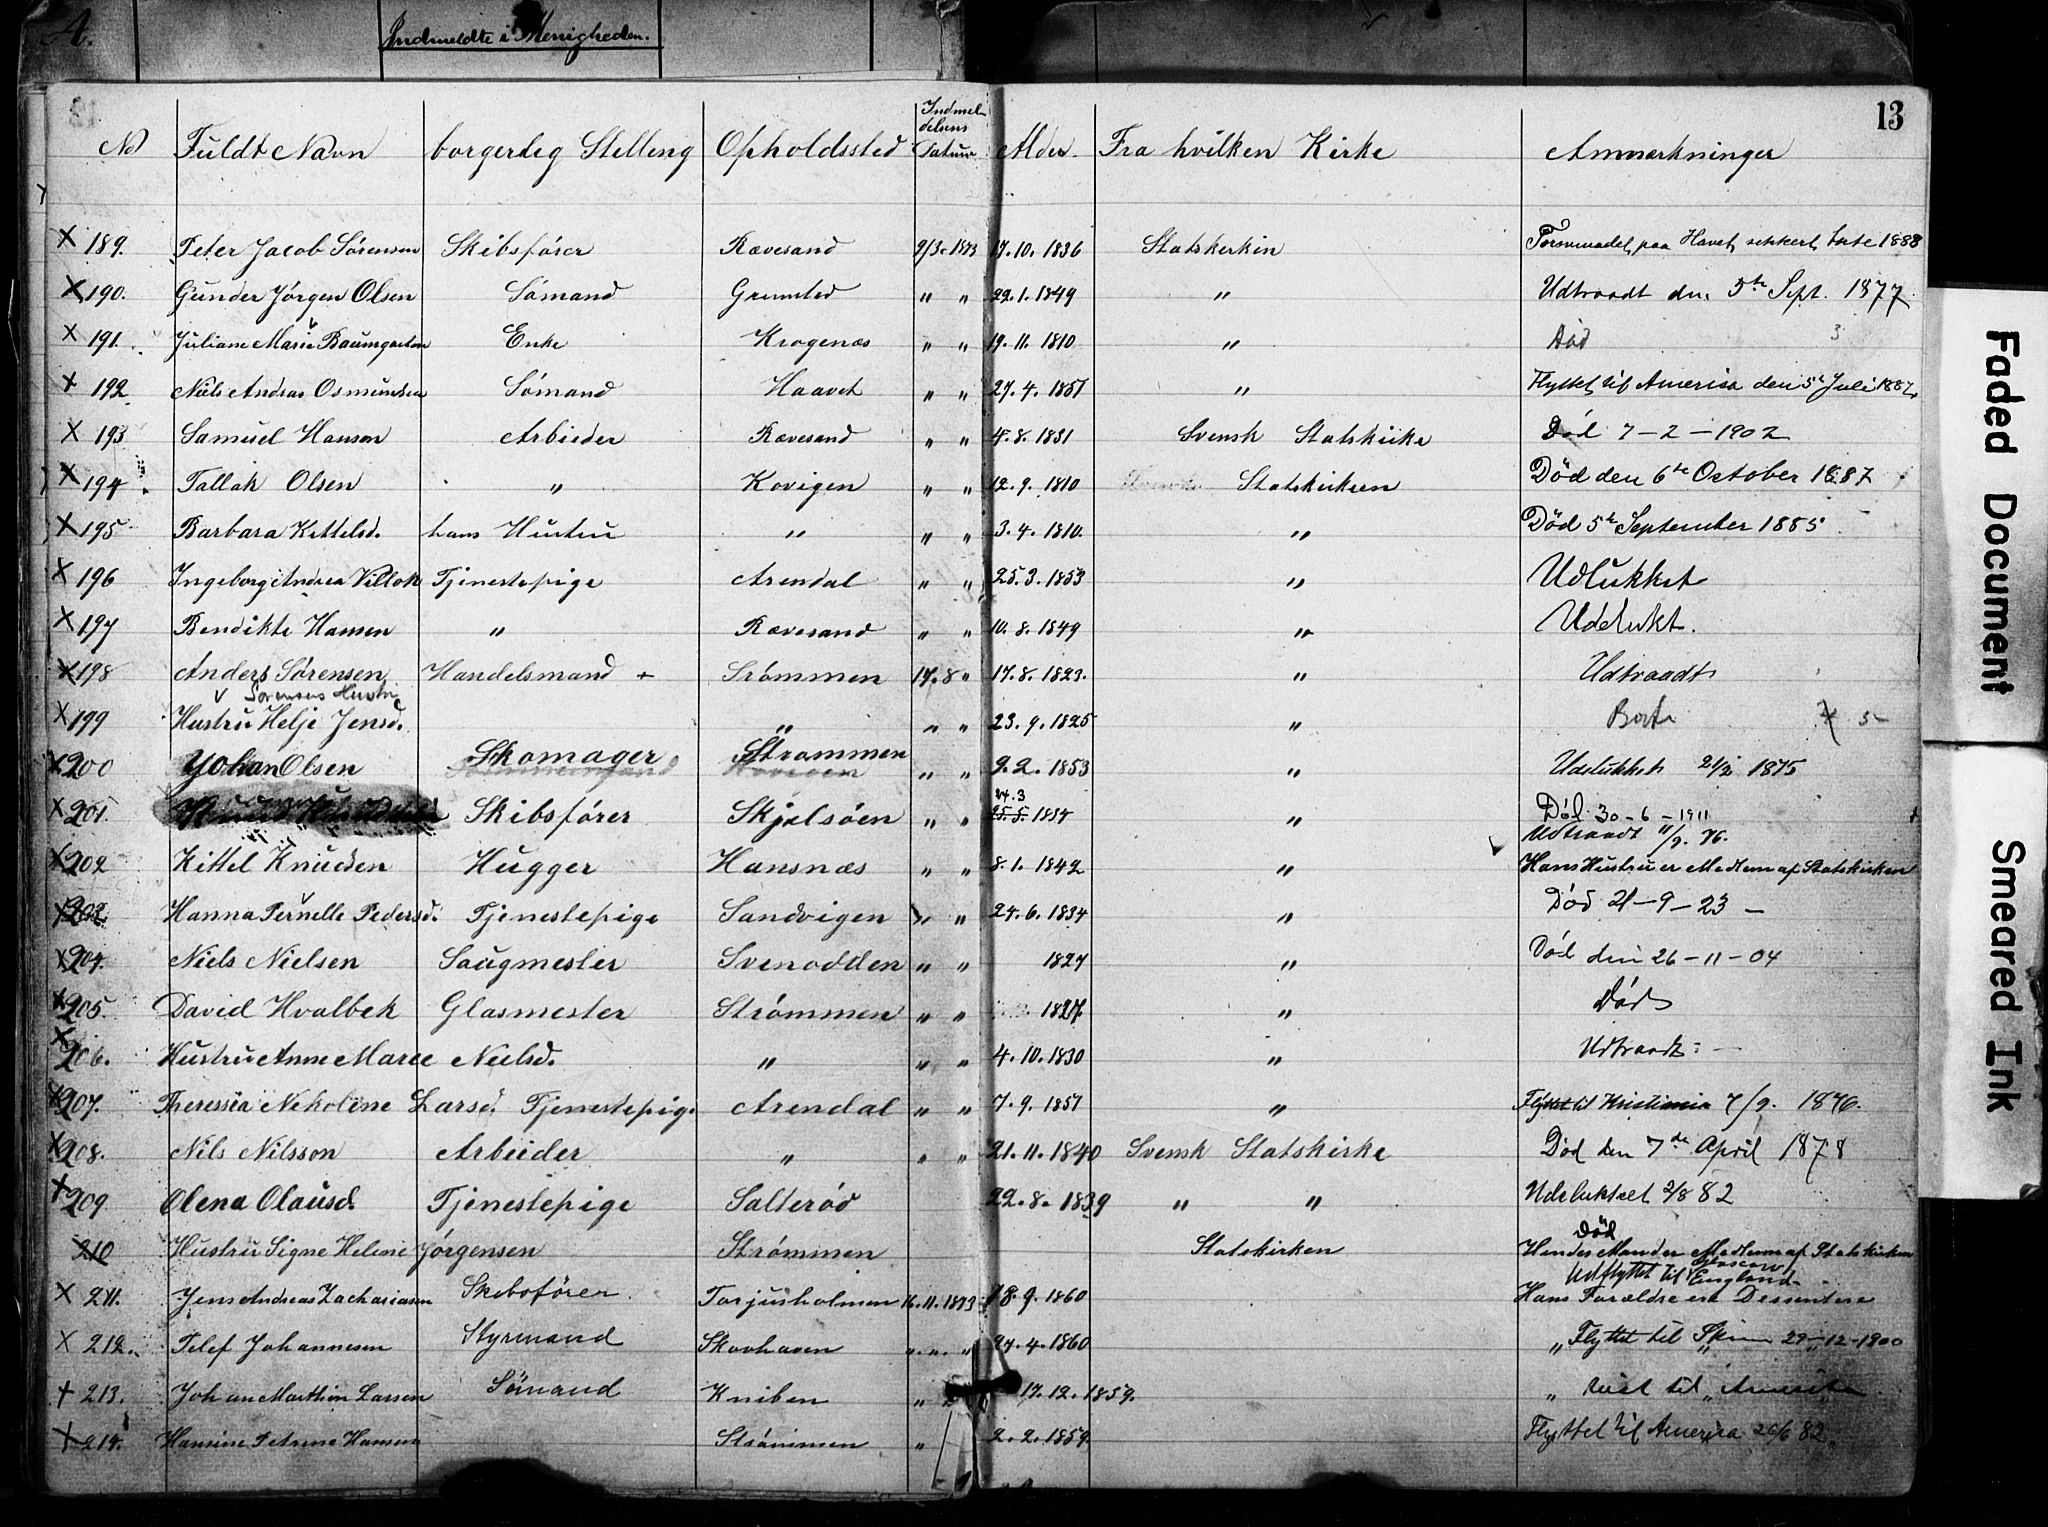 A.
Indmeldte i Menigheden.
13
No Fuldt Navn borgerlig Stilling Opholdssted Indmeldelsens Datum Alder. Fra hvilken Kirke Anmærkninger
X 189. Peter Jacob Sørensen Skibsfører Rævesand 9/3. 1873 17. 10. 1836 Statskirkin Forsvundet paa Havet sikkert 1888
X 190. Gunder Jørgen Olsen Sømand Grimsted " " 22. 1. 1849 " Udtraadt den 5te Sept. 1877
X 191. Juliane Marie Baumgarten Enke Krogenæs " " 19. 11. 1810 " Død 3
X 192 Niels Andras Osmundsen Sømand Haavet " " 27. 4. 1851 " Flyttet til Amerika den 5te Juli 1882
X 193 Samuel Hansen Arbieder Rævesand " " 4. 8. 1831 Svensk Statskirke Død 7-2-1902
X 194 Tallak Olsen " Kovigen " " 12. 9. 1810 Statskirken Død den 6te October 1887
X 195 Barbara Kittelsd. hans Hustru " " " 3. 4. 1810. " Død 5te September 1885
X 196 Ingeborg Andrea Tjenestepige Arendal " " 25. 3. 1853 " Udlukket
X 197 Bendikte Hansen " Rævesand " " 10. 8. 1849 " Udelukt.
X 198 Anders Sørensen Handelsmand + Strømmen 17. 8 " 17. 8. 1823. " Udtraadt
Sørensens Hustru
X 199 Hustru Helje Jensd. " " " 23. 9. 1825 " Borte 5
X 200 Yohan Olsen Skomager Strommen " " 9. 2. 1853 " Udelukket 1875
X 201. Knud Knudsen Skibsfører Skjelsöen " " 24. 3 25. 5. 1834 " Død 30-6-1911
Udtraadt 11/9. 76.
X 202 Kittel Knudsen Hugger Hansnæs " " 8. 1. 1842 " Hans Hustru er Medlem af Statskirken
X 203. Hanna Pernelle Pedersd. Tjenestepige Sandvigen " " 24. 6. 1834 " Død 21-9-23 -
X 204. Niels Nielsen Saugmester Svenodden " " 1827 " Död den 26-11-04
X 205. David Hvalbek Glasmester Strømmen " " 1827. " Død
X 206. Hustru Anne Marie Nielsd. " " " 4. 10. 1830 " Udtraadt: -
X 207. Theressia Nekoline Larsd. Tjenestepige Arendal " " 7. 9. 1851 " Flyttet til Kristiania 7/9. 1876.
X 208. Nils Nilsson Arbieder " " " 21. 11. 1840 Svensk Statskirke Død den 7de April 1878
X 209 Olena Olausd. Tjenestepige Salterød 22. 8. 1839 " " Udeluktet 2/8 82
210 Hustru Signe Helene Jørgensen Strømmen Statskirken Död
Hendes Mand er Medlem af Statskirken
X 211. Jens Andreas Zachariasen Skibsfører Torjusholmen 16. 11. 1873 18. 9. 1860 Udflyttet til Glascow England-
Hans Forældre ere Dessentere
X 212. Telef Johannesen Styrmand Skovhaven " " " 27. 4. 1860 " Flyttet til Skien 29-12-1900
X 213. Johan Marthin Larsen Sömand Kniben " " 17. 12. 1859. " reist til Amerika
X 214. Hansine Petrine Hansen Strömmen " 2. 2. 1859. Flyttet til Amerika 26/6 82.
Faded Document
Smeared Ink